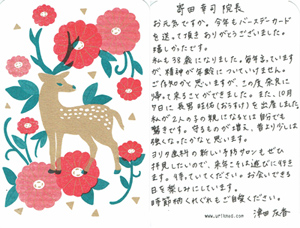 寄田 幸司 院長
お元気ですか。今年もバースデーカード
を送って頂きありがとうございました。
嬉しかったです。
私も38歳になりました。毎年言っています
が、精神が年齢についていけません。
ご存知かと思いますが、この度奈良に
帰って来ることができました。また、10月
7日に長男を出産しました
私が2人の子の親になるとは自分でも
驚きです。守るものが増え、昔より少しは
強くなったかなと思います。
ヨリタ歯科の新しい予防サロンもぜひ
拝見したいので、来年こそは遊びに行き
ます。待っていてください。お会いできる
日を楽しみにしています。
時節柄くれぐれもご自愛ください。
津田 友香
www.urihnud.com